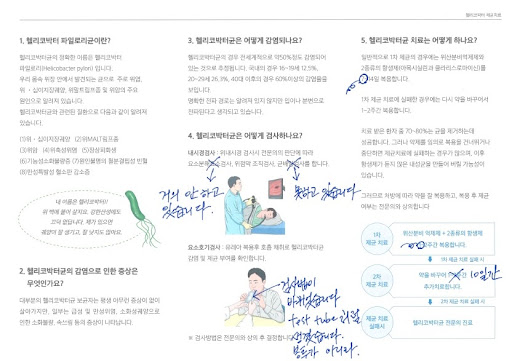 헬리코박터 제균치료
1. 헬리코박터 파일로리균이란?
헬리코박터균의 정확한 이름은 헬리코박터
파일로리(Helicobacter pylori) 입니다.
우리 몸속 위장 안에서 발견되는 균으로 주로 위염,
위 · 십이지장궤양, 위말트림프종 및 위암의 주요
원인으로 알려져 있습니다.
헬리코박터균과 관련된 질환으로 다음과 같이 알려져
있습니다.
(1)위 · 십이지장궤양 (2)위MALT림프종
(3)위암 (4)위축성위염 (5)장상피화생
(6)기능성소화불량증 (7)원인불명의 철분결핍성 빈혈
(8)만성특발성 혈소판 감소증
내 이름은 헬리코박터!
위 벽에 붙어 살지요. 강한산성에도
끄떡 없답니다. 제가 있으면
궤양이 잘 생기고, 잘 낫지도 않아요.
2. 헬리코박터균의 감염으로 인한 증상은
무엇인가요?
대부분의 헬리코박터균 보균자는 평생 아무런 증상이 없이
살아가지만, 일부는 급성 및 만성위염, 소화성궤양으로
인한 소화불량, 속쓰림 등의 증상이 나타납니다.
3. 헬리코박터균은 어떻게 감염되나요?
헬리코박터균의 경우 전세계적으로 약50%정도 감염되어
있는 것으로 추정됩니다. 국내의 경우 16~19세 12.5%,
20~29세 26.1%, 40대 이후의 경우 60%이상의 감염률을
보입니다.
명확한 전파 경로는 알려져 있지 않지만 입이나 분변으로
전파된다고 생각되고 있습니다.
4. 헬리코박터균은 어떻게 검사하나요?
내시경검사 : 위내시경 검사시 전문의의 판단에 따라
요소분해 검사, 위점막 조직검사, 균배 검사를 합니다.
거의 안 하고
있습니다.
못하고 있습니다.
요소호기검사 : 유레아 복용후 호흡 채취로 헬리코박터균
감염 및 제균 부여를 확인합니다.
검사법이
바뀌었습니다
test tube
보드가 아니라.
※ 검사방법은 전문의와 상의 후 결정합니다.
5. 헬리코박터균 치료는 어떻게 하나요?
일반적으로 1차 제균의 경우에는 위산분비억제제와
2종류의 항생제(아목시실린과 클라리스로마이신)를
14일 복용합니다.
1차 제균 치료에 실패한 경우에는 다시 약을 바꾸어서
1~2주간 복용합니다.
치료 받은 환자 중 70~80%는 균을 제거하는데
성공합니다. 그러나 약제를 임의로 복용을 건너뛰거나
중단하면 제균치료에 실패하는 경우가 많으며, 이후
항생제가 듣지 않은 내성균을 만들어 버릴 가능성이
있습니다.
그러므로 처방에 따라 약을 잘 복용하고, 복용 후 제균
여부는 전문의와 상의합니다.
1차
제균 치료
위산분비 억제제 + 2종류의 항생제
2주간 복용합니다.
1차 제균 치료 실패 시
2차
제균 치료
약을 바꾸어 10일간
추가치료합니다.
2차 제균 치료 실패 시
제균 치료
실패시
헬리코박터균 전문의 진료